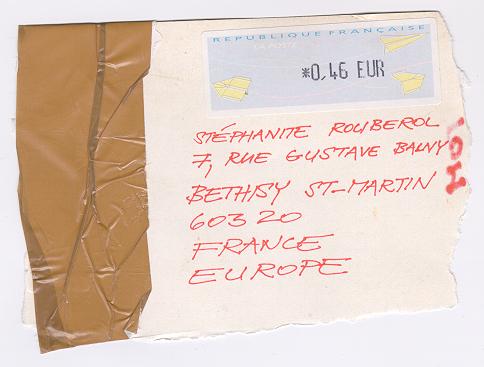 REPUBLIQUE FRANÇAISE
LA POSTE
*0,46 EUR
STÉPHANITE ROUBEROL
7, RUE GUSTAVE BALNY
BETHISY ST-MARTIN
60320
FRANCE
EUROPE